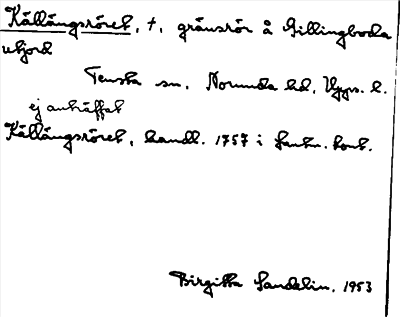 Källängsröret, †, gränsrör å Gillingboda
utjord
Tensta sn, Norunda hd, Upps. l.
ej anträffat
Källängsröret, handl. 1757 i Lantm. kont.
Birgitta Sandelin. 1953